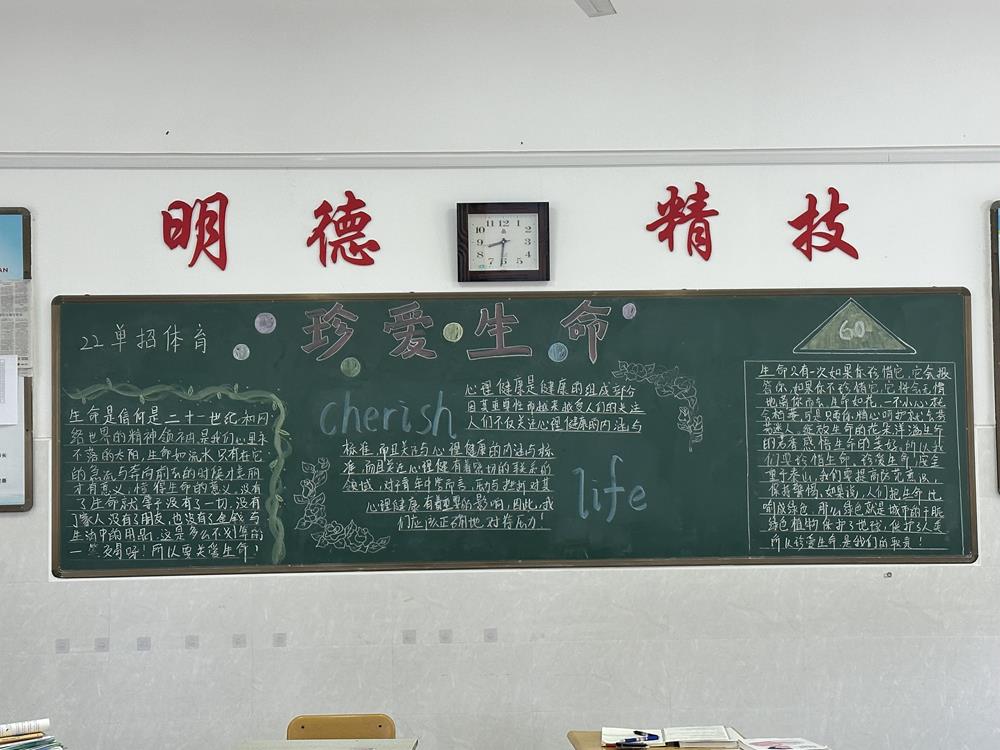 明德 精技
12
11
1
10
2
9
3
8
4
7
5
6
22单招体育
珍爱生命
60
cherish
life
生命是信仰是二十一世纪和网
络世界的精神领袖是我们心里永
不落的太阳,生命如流水只有在它
的急流与奔向前去的时候才美丽
才有意义,懂得生命的意义,没有
了生命就等于没有了一切,没有
了家人没有了朋友,也没有了金钱与
生活中的用品,这是多么不划算的
一笔交易呀!所以要关爱生命!
心理健康是健康的组成部分
因其重要性而越来越多人们的关注
人们不仅关注心理健康的内涵与
标准,而且关注与心理健康的内涵与标
准,而且关注心理健有着密切的联系的
领域,对青年中学而言,压力与挫折对其
心理健康有着重要的影响,因此,我
们应该正确地对待压力!
生命只有一次如果你珍惜它,它会报
答你,如果你不珍惜它,它将会无情
地离你而去,生命如花,一不小心就
会枯萎,可是只要你精心呵护就会芬
芳迷人,绽放生命的花朵洋溢生命
的青春感悟生命的美好,所以我
们要珍惜生命,珍爱生命,安全
重于泰山,我们要提高防范意识,
保持警惕,如果说,人们把生命比
喻成绿色,那么绿色就是城市的干脆
绿色植物保护了地球,保护了人类
所以珍爱生命是我们的职责!